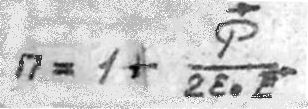 n = 1 + \frac{\vec{P}}{2 ε_0 \vec{E}}